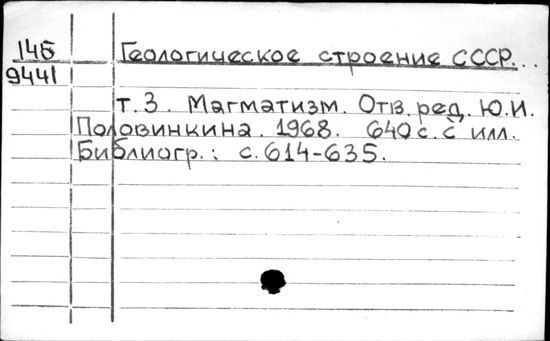 145 Геологическое строение СССР...
9441
т. 3. Магматизм. Отв. ред. Ю.И.
Половинкина. 1968. 640 с. с илл.
Библиогр.: с. 614-635.